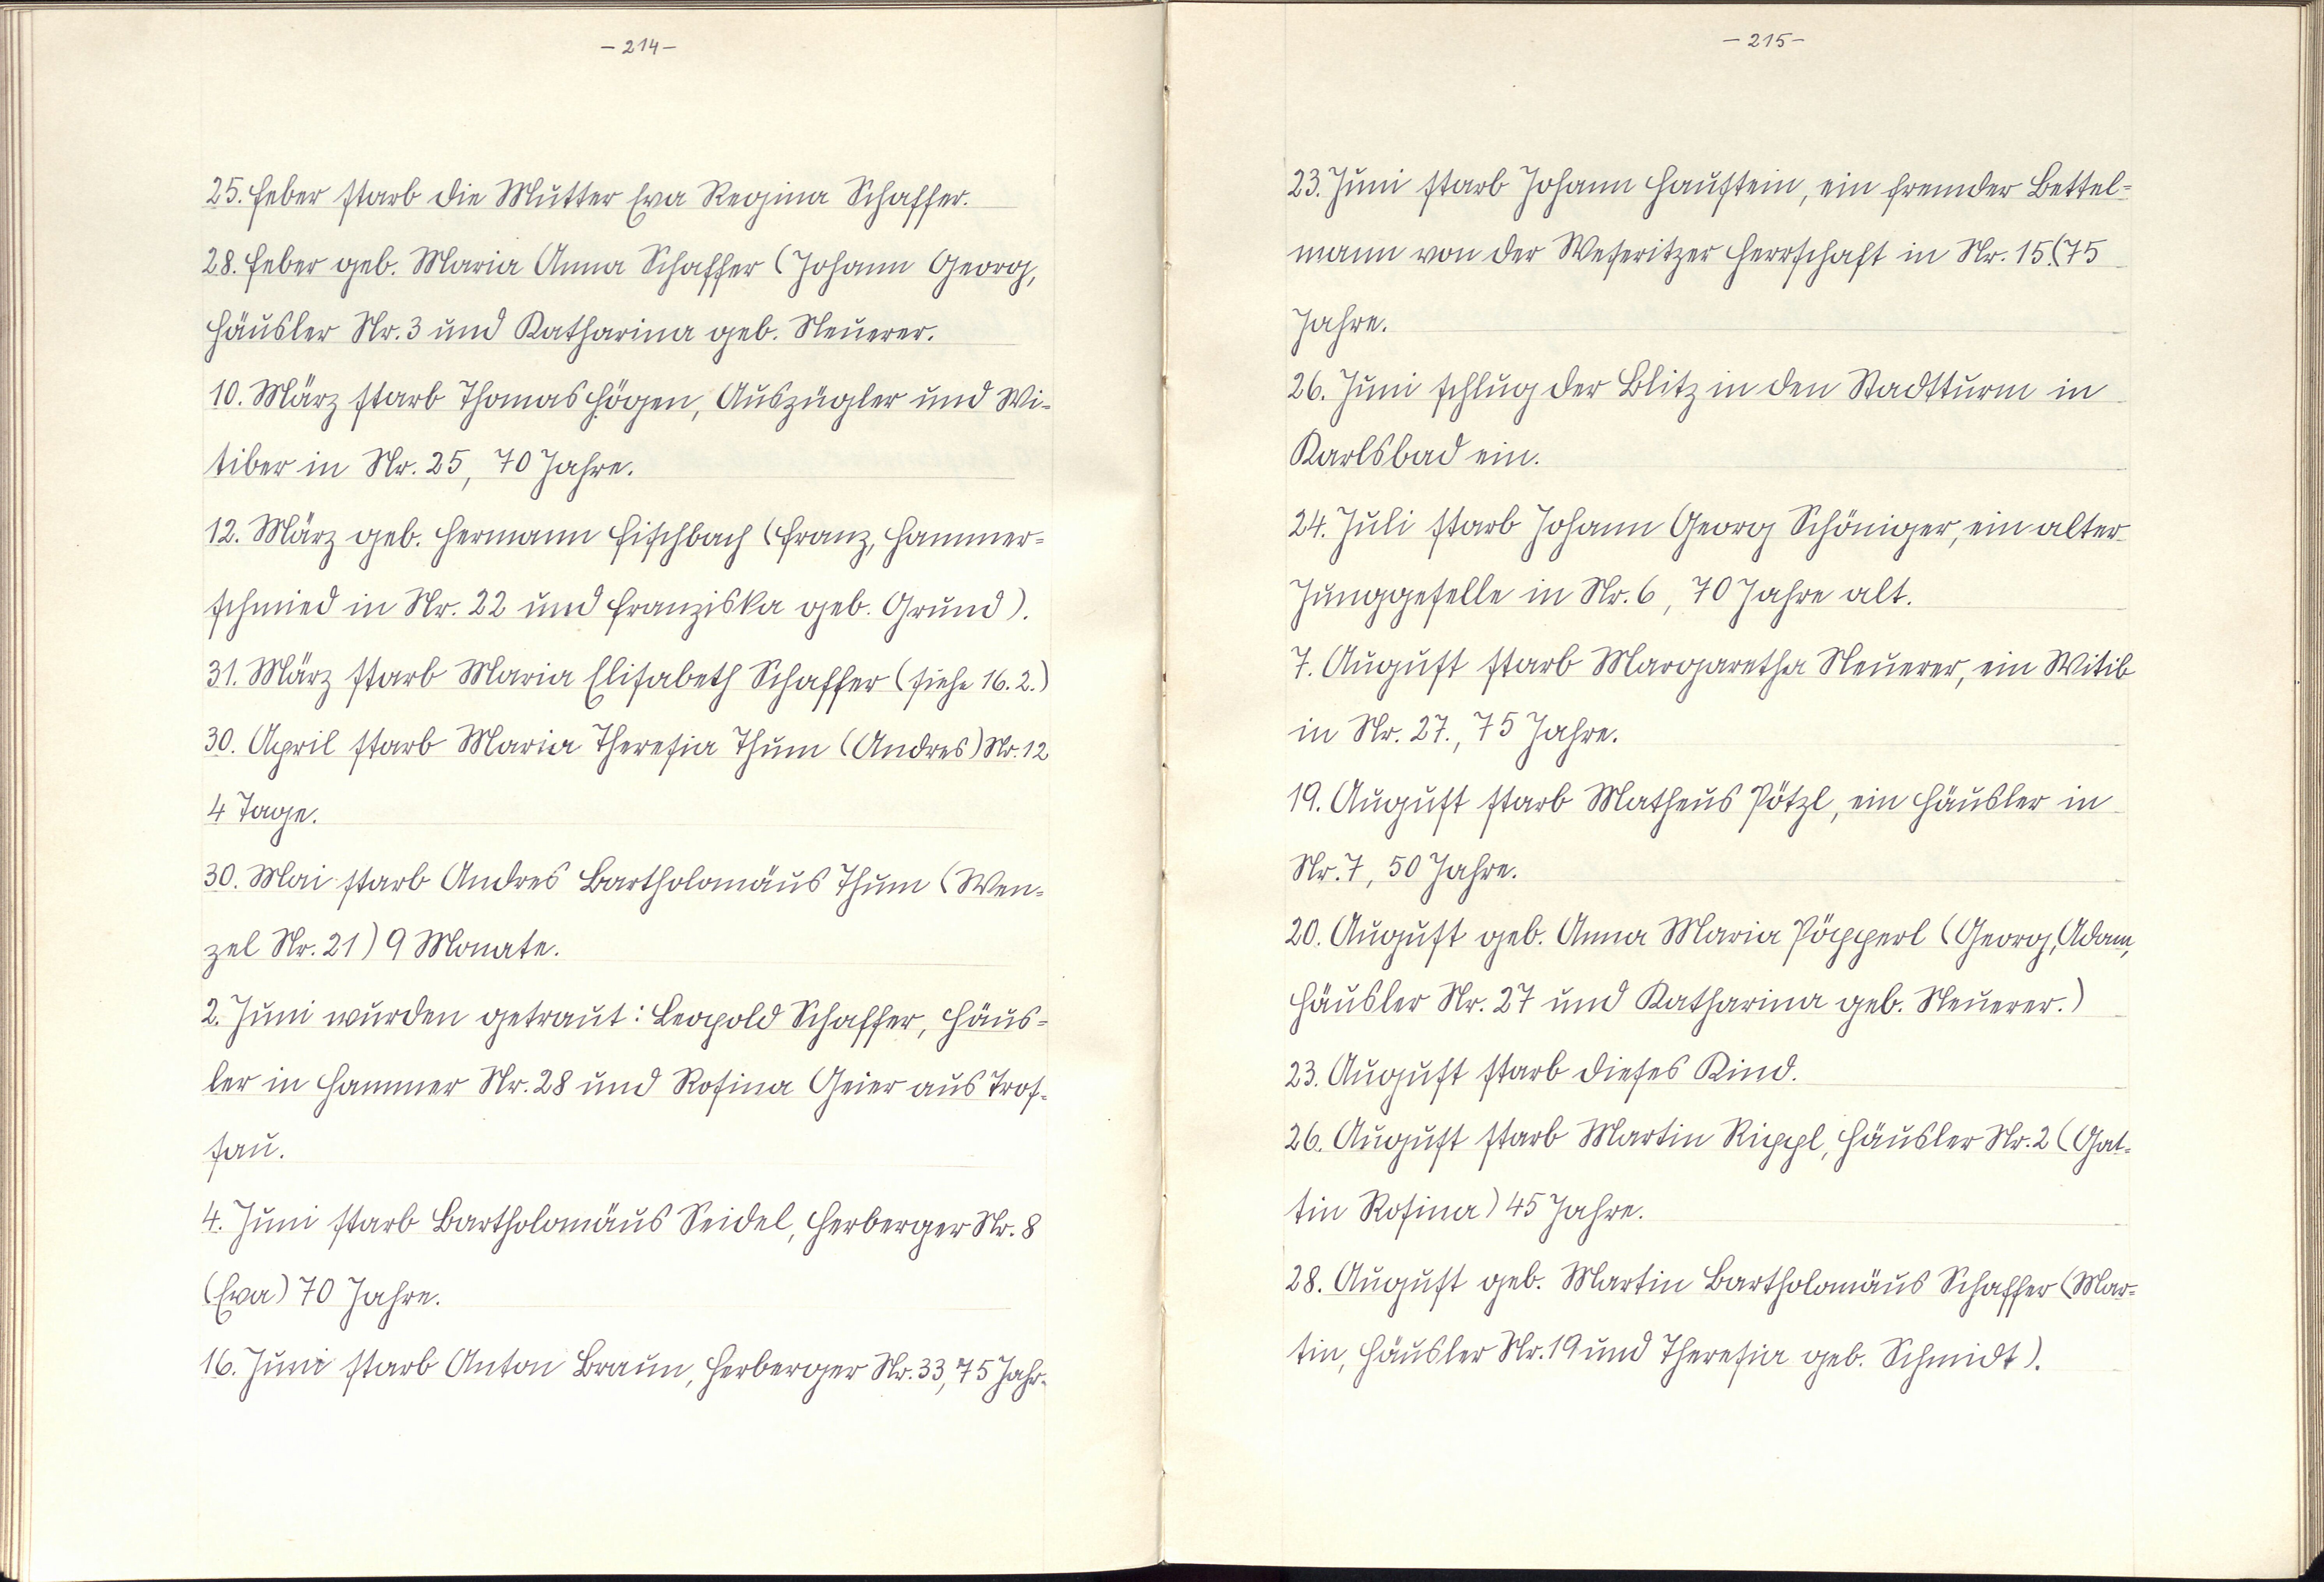 - 214 -
25. Feber starb die Mutter Eva Regina Schaffer.
28. Feber geb. Maria Anna Schaffer (Johann Georg,
Häusler Nr. 3 und Katharina geb. Neuerer.
10. März starb Thomas Högen, Auszügler und Wi-
tiber in Nr. 25, 70 Jahre.
12. März geb. Hermann Fischbach (Franz, Hammer-
schmied in Nr. 22 und Franziska geb. Grund).
31. März starb Maria Elisabeth Schaffer (siehe 16. 2.)
30. April starb Maria Theresia Thum (Andres) Nr. 12
4 Tage.
30. Mai starb Andres Bartholomäus Thum (Wen-
zel Nr. 21) 9 Monate.
2. Juni wurden getraut: Leopold Schaffer, Häus-
ler in Hammer Nr. 28 und Rosina Geier aus Tros-
sau.
4. Juni starb Bartholomäus Seidel, Herberger Nr. 8
(Eva) 70 Jahre.
16. Juni starb Anton Braun, Herberger Nr. 33, 75 Jahr.
- 215 -
23. Juni starb Johann Haustein, ein fremder Bettel-
mann von der Weseritzer Herrschaft in Nr. 15. (75
Jahre.
26. Juni schlug der Blitz in den Stadtturm in
Karlsbad ein.
24. Juli starb Johann Georg Schöniger, ein alter
Junggeselle in Nr. 6, 70 Jahre alt.
7. August starb Margaretha Neuerer, ein Witib
in Nr. 27., 75 Jahre.
19. August starb Matheus Pötzl, ein Häusler in
Nr. 7, 50 Jahre.
20. August geb. Anna Maria Pöpperl (Georg, Adam,
Häusler Nr. 27 und Katharina geb. Neuerer.)
23. August starb dieses Kind.
26. August starb Martin Rippl, Häusler Nr. 2 (Gat-
tin Rosina) 45 Jahre.
28. August geb. Martin Bartholomäus Schaffer (Mar-
tin, Häusler Nr. 19 und Theresia geb. Schmidt).